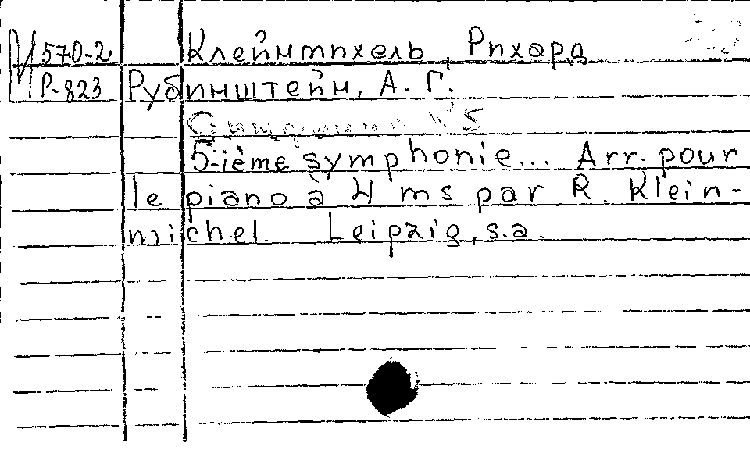 И 570-2 Клейнмихель, Рихард
Р-823 Рубинштейн, А. Г.
Симфония №5
5-ième symphonie... Arr. pour
le piano à 4 ms par R. Klein-
michel. Leipzig, s.a.